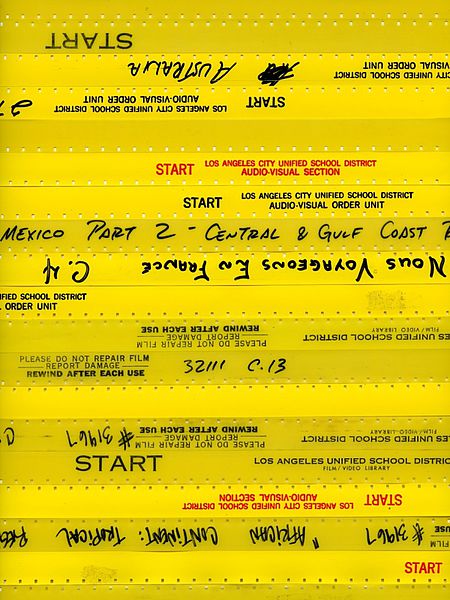 START
AUSTRALIA
LOS ANGELES CITY UNIFIED SCHOOL DISTRICT
AUDIO-VISUAL ORDER UNIT
START
LOS ANGELES CITY UNIFIED SCHOOL DISTRICT
AUDIO-VISUAL ORDER UNIT
START
LOS ANGELES CITY UNIFIED SCHOOL DISTRICT
AUDIO-VISUAL SECTION
START
LOS ANGELES CITY UNIFIED SCHOOL DISTRICT
AUDIO-VISUAL ORDER UNIT
MEXICO PART 2 - CENTRAL & GULF COAST
NOUS VOYAGEONS EN FRANCE C.4
SCHOOL DISTRICT
ORDER UNIT
UNIFIED SCHOOL DISTRICT
FILM/VIDEO LIBRARY
PLEASE DO NOT REPAIR FILM
REPORT DAMAGE
REWIND AFTER EACH USE
PLEASE DO NOT REPAIR FILM
REPORT DAMAGE
REWIND AFTER EACH USE
32111 C.13
UNIFIED SCHOOL DISTRICT
FILM/VIDEO LIBRARY
PLEASE DO NOT REPAIR FILM
REPORT DAMAGE
REWIND AFTER EACH USE
#31967
START
LOS ANGELES UNIFIED SCHOOL DISTRICT
FILM/VIDEO LIBRARY
START
LOS ANGELES CITY UNIFIED SCHOOL DISTRICT
AUDIO-VISUAL SECTION
#31967 "AFRICAN CONTINENT: TROPICAL
START